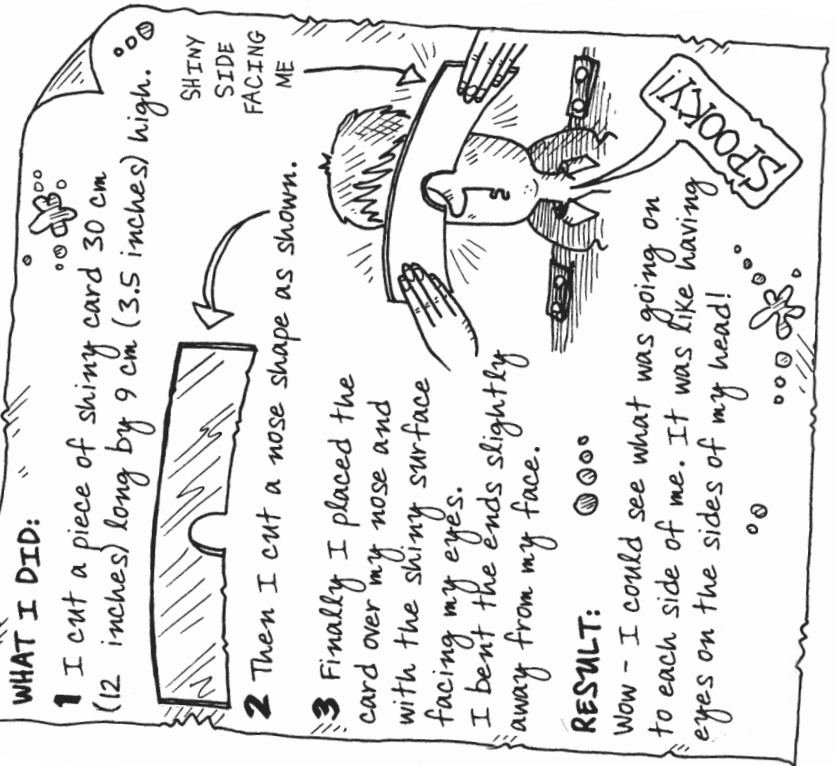 WHAT I DID:
1 I cut a piece of shiny card 30 cm
(12 inches) long by 9 cm (3.5 inches) high.
2 Then I cut a nose shape as shown.
SHINY
SIDE
FACING
ME
3 Finally I placed the
card over my nose and
with the shiny surface
facing my eyes.
I bent the ends slightly
away from my face.
SPOOKY!
RESULT:
Wow - I could see what was going on
to each side of me. It was like having
eyes on the sides of my head!